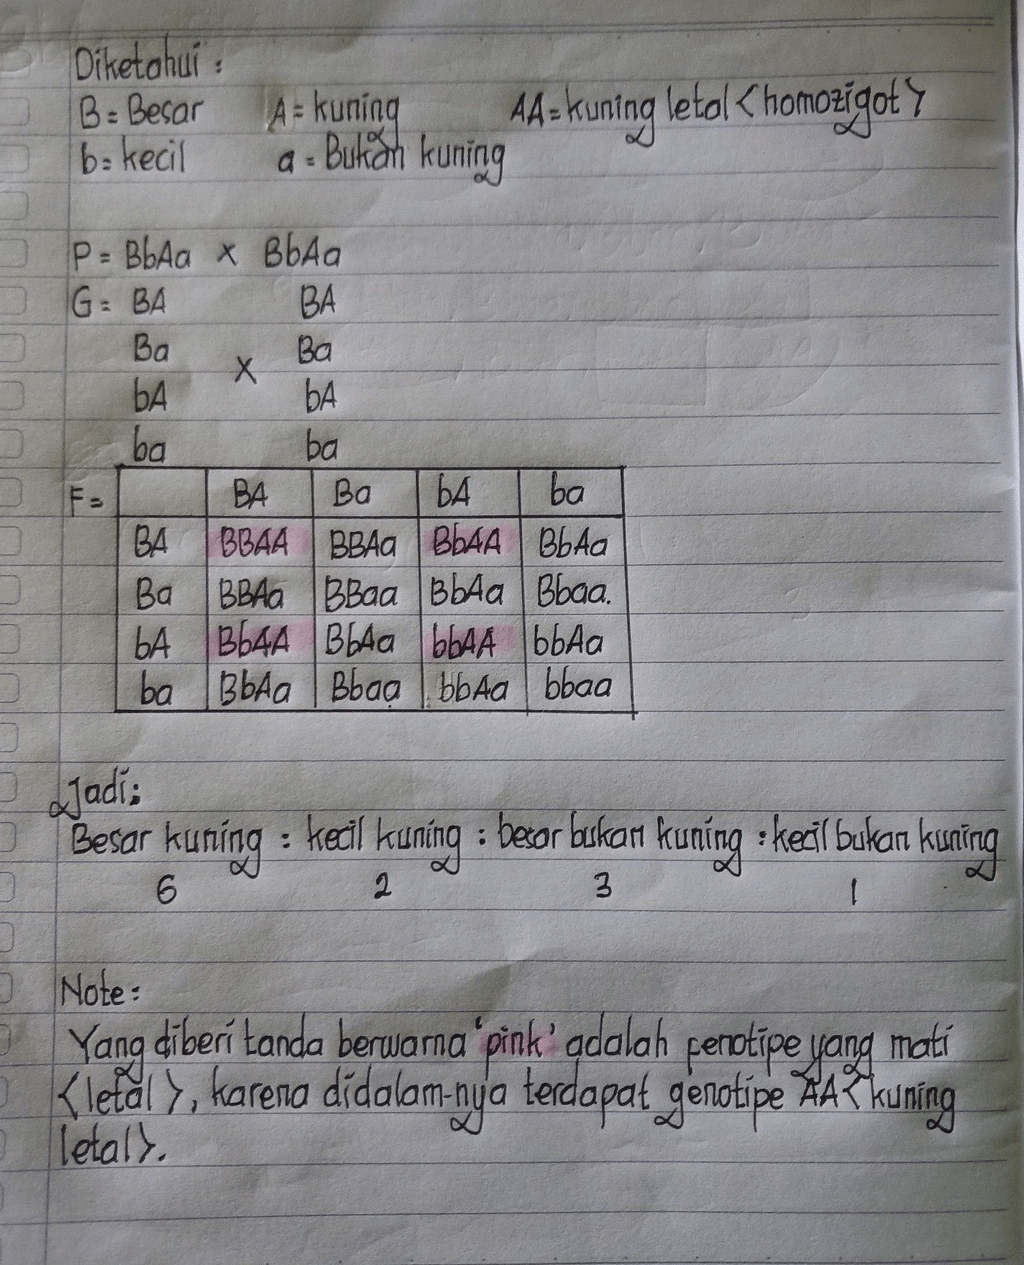 Diketahui :
B = Besar A = kuning AA = kuning letal <homozigot>
b = kecil a = Bukan kuning
P = BbAa x BbAa
G = BA BA
Ba x Ba
bA bA
ba ba
F = BA Ba bA ba
BA BBAA BBAa BbAA BbAa
Ba BBAa BBaa BbAa Bbaa.
bA BbAA BbAa bbAA bbAa
ba BbAa Bbaa bbAa bbaa
Jadi:
Besar kuning : kecil kuning : besar bukan kuning : kecil bukan kuning
6 2 3 1
Note:
Yang diberi tanda berwarna 'pink' adalah fenotipe yang mati
<letal>, karena didalam-nya terdapat genotipe AA <kuning
letal>.